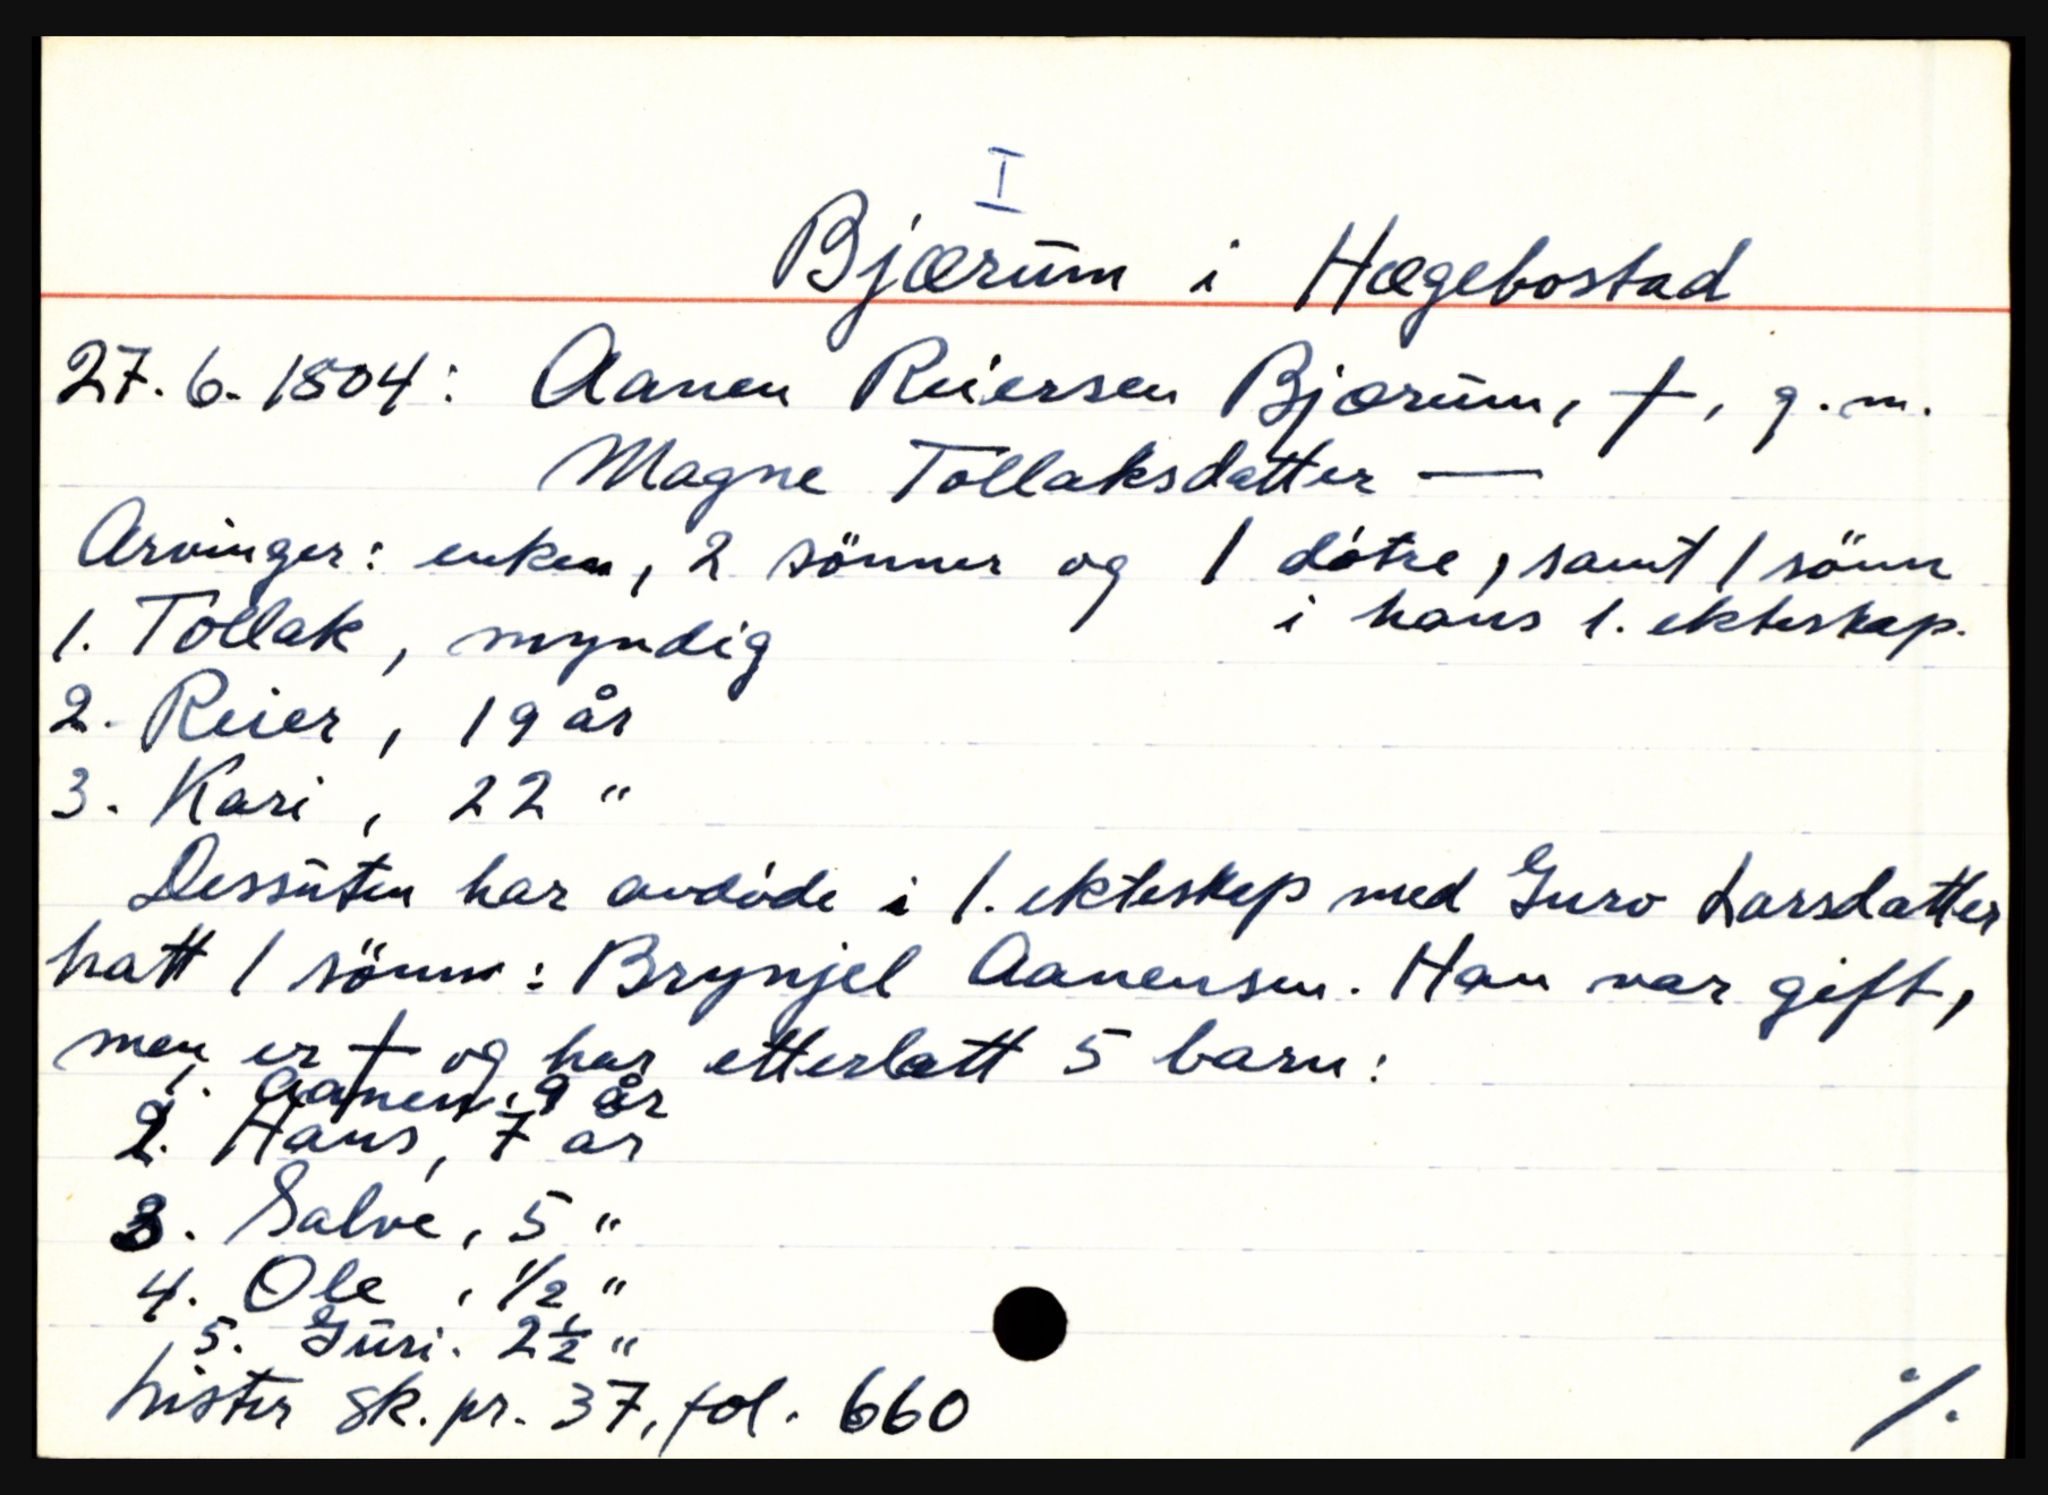 I
Bjærum i Hægebostad
27. 6. 1804: Aanen Reiersen Bjærum, †, g. m.
Magne Tollaksdatter —
Arvinger: enken, 2 sönner og 1 dötre, samt 1 sönn
i hans 1. ekteskap.
1. Tollak, myndig
2. Reier, 19 år
3. Kari, 22 "
Dessuten har avdöde i 1. ekteskep med Guro Larsdatter
hatt 1 sönn: Brynjel Aanensen. Han var gift,
men er † og har etterlatt 5 barn:
1. Aanen, 9 år
2. Hans, 7 år
3. Salve, 5 "
4. Ole, 1/2 "
5. Guri. 2 1/2 "
Lister sk. pr. 37, fol. 660
./.